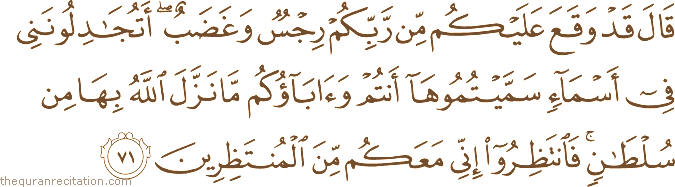 قَالَ قَدْ وَقَعَ عَلَيْكُم مِّن رَّبِّكُمْ رِجْسٌ وَغَضَبٌ ۖ أَتُجَـٰدِلُونَنِى
فِىٓ أَسْمَآءٍ سَمَّيْتُمُوهَآ أَنتُمْ وَءَابَآؤُكُم مَّا نَزَّلَ ٱللَّهُ بِهَا مِن
سُلْطَـٰنٍ ۚ فَٱنتَظِرُوٓا۟ إِنِّى مَعَكُم مِّنَ ٱلْمُنتَظِرِينَ ٧١
thequranrecitation.com